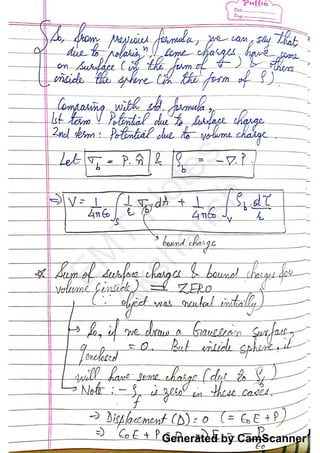 Puffin
Date
Page
So, from previous formula, we can say that
due to polarisn, some charges have come
on surface (in the form of σ) & others
inside the sphere (in the form of ρ)
Comparing with std. formula,
1st term: Potential due to surface charge
2nd term: Potential due to volume charge.
Let σb = P.n̂ & ρb = -∇.P
⇒ V = 1/4πϵ₀ ∮s 1/r σb dA + 1/4πϵ₀ ∫v ρb dτ/r
bound charge
* Sum of surface charges & bound charges for
volume (inside) = ZERO
(∵ object was neutral initially)
→ So, if we draw a Gaussian surface,
qenclosed = 0. But inside sphere, it
will have some charge (due to ρb)
→ Note :- ρf is zero in these cases,
⇒ Displacement (D) = 0 (= ϵ₀E + P)
⇒ ϵ₀E + P
Generated by CamScanner